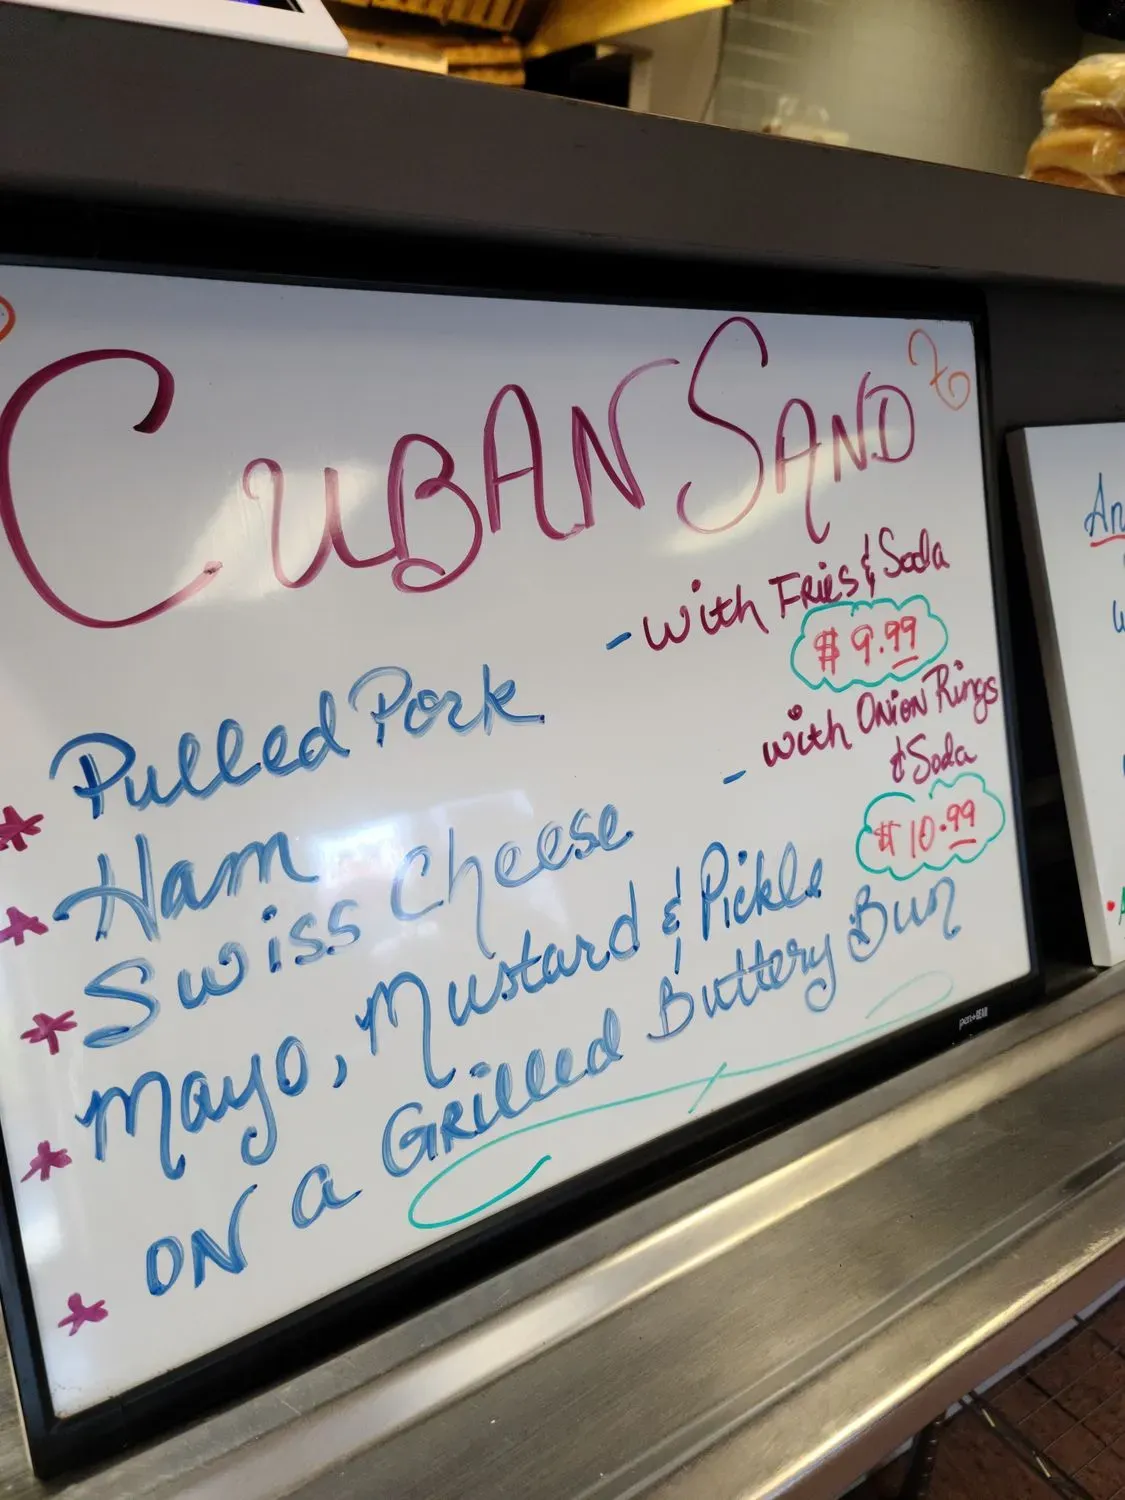 CUBAN SAND
- with Fries & Soda
$ 9.99
- with Onion Rings
& Soda
$ 10.99
* Pulled Pork
* Ham
* Swiss Cheese
* Mayo, Mustard & Pickle
* ON a Grilled Buttery Bun
pen+GEAR
An